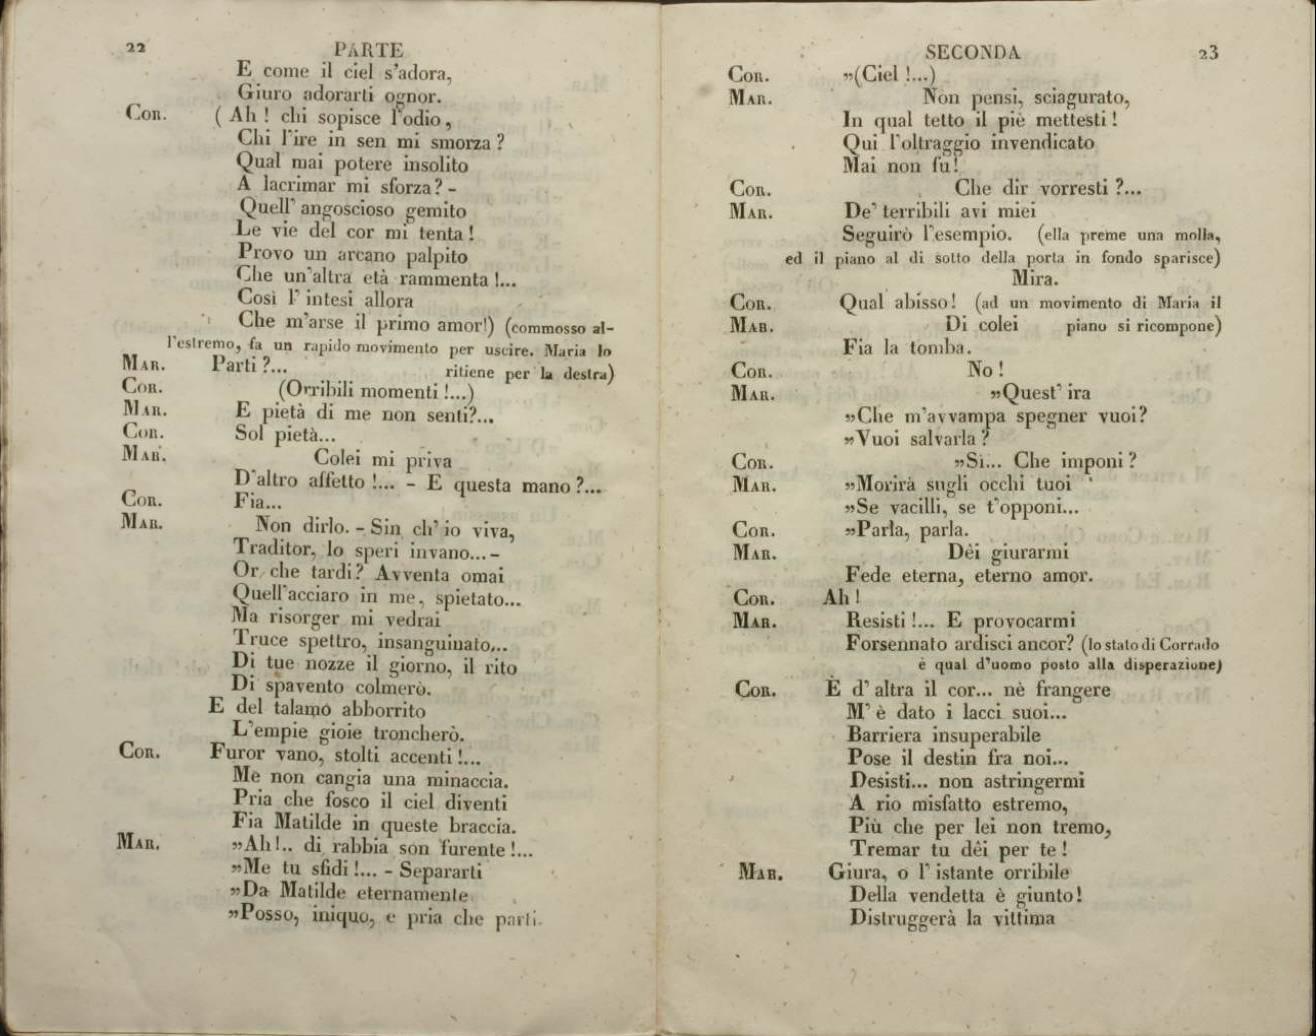 22 PARTE
E come il ciel s'adora,
Giuro adorarti ognor.
Cor. ( Ah ! chi sopisce l'odio ,
Chi l'ire in sen mi smorza ?
Qual mai potere insolito
A lacrimar mi sforza ? -
Quell' angoscioso gemito
Le vie del cor mi tenta !
Provo un arcano palpito
Che un'altra età rammenta !...
Così l' intesi allora
Che m'arse il primo amor!) (commosso al-
l'estremo, fa un rapido movimento per uscire. Maria lo
Mar. Parti ?... ritiene per la destra)
Cor. (Orribili momenti !...)
Mar. E pietà di me non senti?...
Cor. Sol pietà...
Mar. Colei mi priva
D'altro affetto !... - E questa mano ?...
Cor. Fia...
Mar. Non dirlo. - Sin ch' io viva,
Traditor, lo speri invano... -
Or che tardi ? Avventa omai
Quell'acciaro in me, spietato...
Ma risorger mi vedrai
Truce spettro, insanguinato...
Di tue nozze il giorno, il rito
Di spavento colmerò.
E del talamo abborrito
L'empie gioie troncherò.
Cor. Furor vano, stolti accenti !...
Me non cangia una minaccia.
Pria che fosco il ciel diventi
Fia Matilde in queste braccia.
Mar. »Ah!.. di rabbia son furente !...
»Me tu sfidi !... - Separarti
»Da Matilde eternamente
»Posso, iniquo, e pria che parti.
SECONDA 23
Cor. »(Ciel !...)
Mar. Non pensi, sciagurato,
In qual tetto il piè mettesti !
Qui l'oltraggio invendicato
Mai non fu!
Cor. Che dir vorresti ?...
Mar. De' terribili avi miei
Seguirò l'esempio. (ella preme una molla,
ed il piano al di sotto della porta in fondo sparisce)
Mira.
Cor. Qual abisso! (ad un movimento di Maria il
Mar. Di colei piano si ricompone)
Fia la tomba.
Cor. No !
Mar. »Quest' ira
»Che m'avvampa spegner vuoi?
»Vuoi salvarla ?
Cor. »Si... Che imponi ?
Mar. »Morirà sugli occhi tuoi
»Se vacilli, se t'opponi...
Cor. »Parla, parla.
Mar. Dèi giurarmi
Fede eterna, eterno amor.
Cor. Ah !
Mar. Resisti !... E provocarmi
Forsennato ardisci ancor? (lo stato di Corrado
è qual d'uomo posto alla disperazione)
Cor. È d' altra il cor... nè frangere
M' è dato i lacci suoi...
Barriera insuperabile
Pose il destin fra noi...
Desisti... non astringermi
A rio misfatto estremo,
Più che per lei non tremo,
Tremar tu dêi per te !
Mar. Giura, o l' istante orribile
Della vendetta è giunto!
Distruggerà la vittima